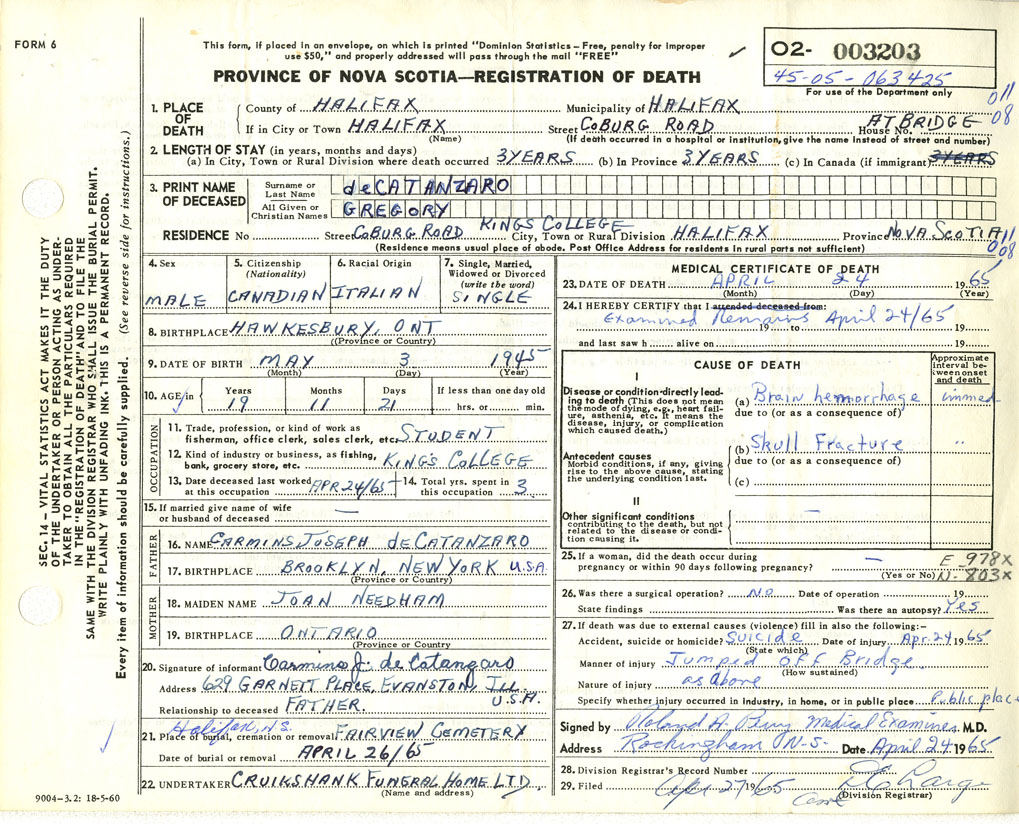 FORM 6
This form, if placed in an envelope, on which is printed "Dominion Statistics – Free, penalty for improper
use $50," and properly addressed will pass through the mail "FREE"
PROVINCE OF NOVA SCOTIA—REGISTRATION OF DEATH
O2- 003203
45-05-063425
For use of the Department only
011
08
1. PLACE OF DEATH
County of HALIFAX Municipality of HALIFAX
If in City or Town HALIFAX Street COBURG ROAD House No. AT BRIDGE
(Name) (If death occurred in a hospital or institution, give the name instead of street and number)
2. LENGTH OF STAY (in years, months and days)
(a) In City, Town or Rural Division where death occurred 3 YEARS (b) In Province 3 YEARS (c) In Canada (if immigrant) 3 YEARS
3. PRINT NAME OF DECEASED
Surname or Last Name deCATANZARO
All Given or Christian Names GREGORY
KINGS COLLEGE
RESIDENCE No Street COBURG ROAD City, Town or Rural Division HALIFAX Province NOVA SCOTIA 11
008
(Residence means usual place of abode. Post Office Address for residents in rural parts not sufficient)
4. Sex MALE
5. Citizenship (Nationality) CANADIAN
6. Racial Origin ITALIAN
7. Single, Married, Widowed or Divorced (write the word) SINGLE
8. BIRTHPLACE HAWKESBURY, ONT
(Province or Country)
9. DATE OF BIRTH MAY 3 1945
(Month) (Day) (Year)
10. AGE in Years 19 Months 11 Days 21 If less than one day old hrs. or min.
OCCUPATION
11. Trade, profession, or kind of work as fisherman, office clerk, sales clerk, etc. STUDENT
12. Kind of industry or business, as fishing, bank, grocery store, etc. KING'S COLLEGE
13. Date deceased last worked at this occupation APR 24/65
14. Total yrs. spent in this occupation 3
15. If married give name of wife or husband of deceased —
FATHER
16. NAME CARMINS JOSEPH deCATANZARO
17. BIRTHPLACE BROOKLYN, NEW YORK U.S.A.
(Province or Country)
MOTHER
18. MAIDEN NAME JOAN NEEDHAM
19. BIRTHPLACE ONTARIO
(Province or Country)
20. Signature of informant Carmins J. de Catanzaro
Address 629 GARNETT PLACE, EVANSTON, ILL U.S.A.
Relationship to deceased FATHER.
Halifax, N.S.
21. Place of burial, cremation or removal FAIRVIEW CEMETERY
Date of burial or removal APRIL 26/65
22. UNDERTAKER CRUIKSHANK FUNERAL HOME LTD.
(Name and address)
MEDICAL CERTIFICATE OF DEATH
23. DATE OF DEATH APRIL 24 1965
(Month) (Day) (Year)
24. I HEREBY CERTIFY that I attended deceased from:
Examined Remains April 24/65
19 to 19
and last saw h alive on 19
CAUSE OF DEATH
Approximate interval between onset and death
I
Disease or condition directly leading to death (This does not mean the mode of dying, e.g., heart failure, asthenia, etc. It means the disease, injury, or complication which caused death.)
(a) Brain hemorrhage immed
due to (or as a consequence of)
Antecedent causes
Morbid conditions, if any, giving rise to the above cause, stating the underlying condition last.
(b) Skull Fracture "
due to (or as a consequence of)
(c)
II
Other significant conditions
contributing to the death, but not related to the disease or condition causing it.
—
25. If a woman, did the death occur during pregnancy or within 90 days following pregnancy? —
(Yes or No)
E 978x
N-803x
26. Was there a surgical operation? NO Date of operation 19
State findings Was there an autopsy? Yes
27. If death was due to external causes (violence) fill in also the following:–
Accident, suicide or homicide? Suicide Date of injury Apr. 24 1965
(State which)
Manner of injury Jumped off Bridge
(How sustained)
Nature of injury as above
Specify whether injury occurred in Industry, in home, or in public place Public place
Signed by Roland A. Medical Examiner M.D.
Address Rockingham N.S. Date April 24 1965
28. Division Registrar's Record Number
29. Filed Apr 27/1965
(Division Registrar)
9004-3.2: 18-5-60
SEC. 14 – VITAL STATISTICS ACT MAKES IT THE DUTY
OF THE UNDERTAKER OR PERSON ACTING AS UNDER-
TAKER TO OBTAIN ALL THE PARTICULARS REQUIRED
IN THE "REGISTRATION OF DEATH" AND TO FILE THE
SAME WITH THE DIVISION REGISTRAR WHO SHALL ISSUE THE BURIAL PERMIT.
WRITE PLAINLY WITH UNFADING INK. THIS IS A PERMANENT RECORD.
Every item of information should be carefully supplied. (See reverse side for instructions.)